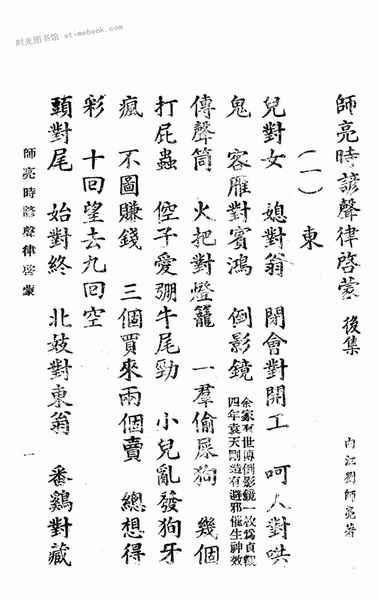 时光图书馆 st-mebook.com
師亮時諺聲律啓蒙 後集 內江劉師亮著
（一）東
兒對女 媳對翁 閉會對開工 呵人對哄
鬼 容雁對賓鴻 倒影鏡 余家有世傳倒影鏡一枚爲貞觀四年袁天剛造有避邪催生神效
傳聲筒 火把對燈籠 一羣偷屎狗 幾個
打屁蟲 倥子愛弸牛尾勁 小兒亂發狗牙
瘋 不圖賺錢 三個買來兩個賣 總想得
彩 十回望去九回空
頭對尾 始對終 北妓對東翁 番鷄對藏
師亮時諺聲律啓蒙 一